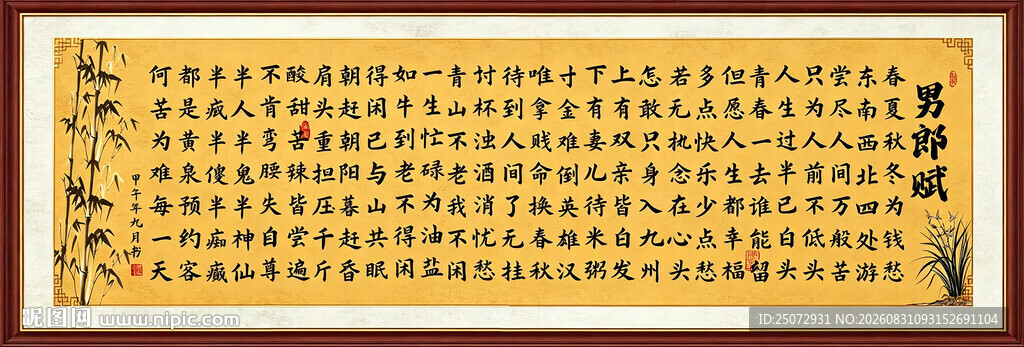 男郎赋
春夏秋冬为钱愁
东南西北四处游
尝尽人间万般苦
只为人前不低头
人生过半已白头
青春一去谁能留
但愿人生都幸福
多点快乐少点愁
若无执念在心头
怎敢只身入九州
上有双亲皆白发
下有妻儿待米粥
寸金难倒英雄汉
唯拿贱命换春秋
待到人间了无挂
讨杯浊酒消忧愁
青山不老我不闲
一生忙碌为油盐
如牛到老不得闲
得闲已与山共眠
朝赶朝阳暮赶昏
肩头重担压千斤
酸甜苦辣皆尝遍
不肯弯腰失自尊
半人半鬼半神仙
半疯半傻半痴癫
都是黄泉预约客
何苦为难每一天
甲午年九月书
昵图网 www.nipic.com
ID:25072931 NO:20260831093152691104